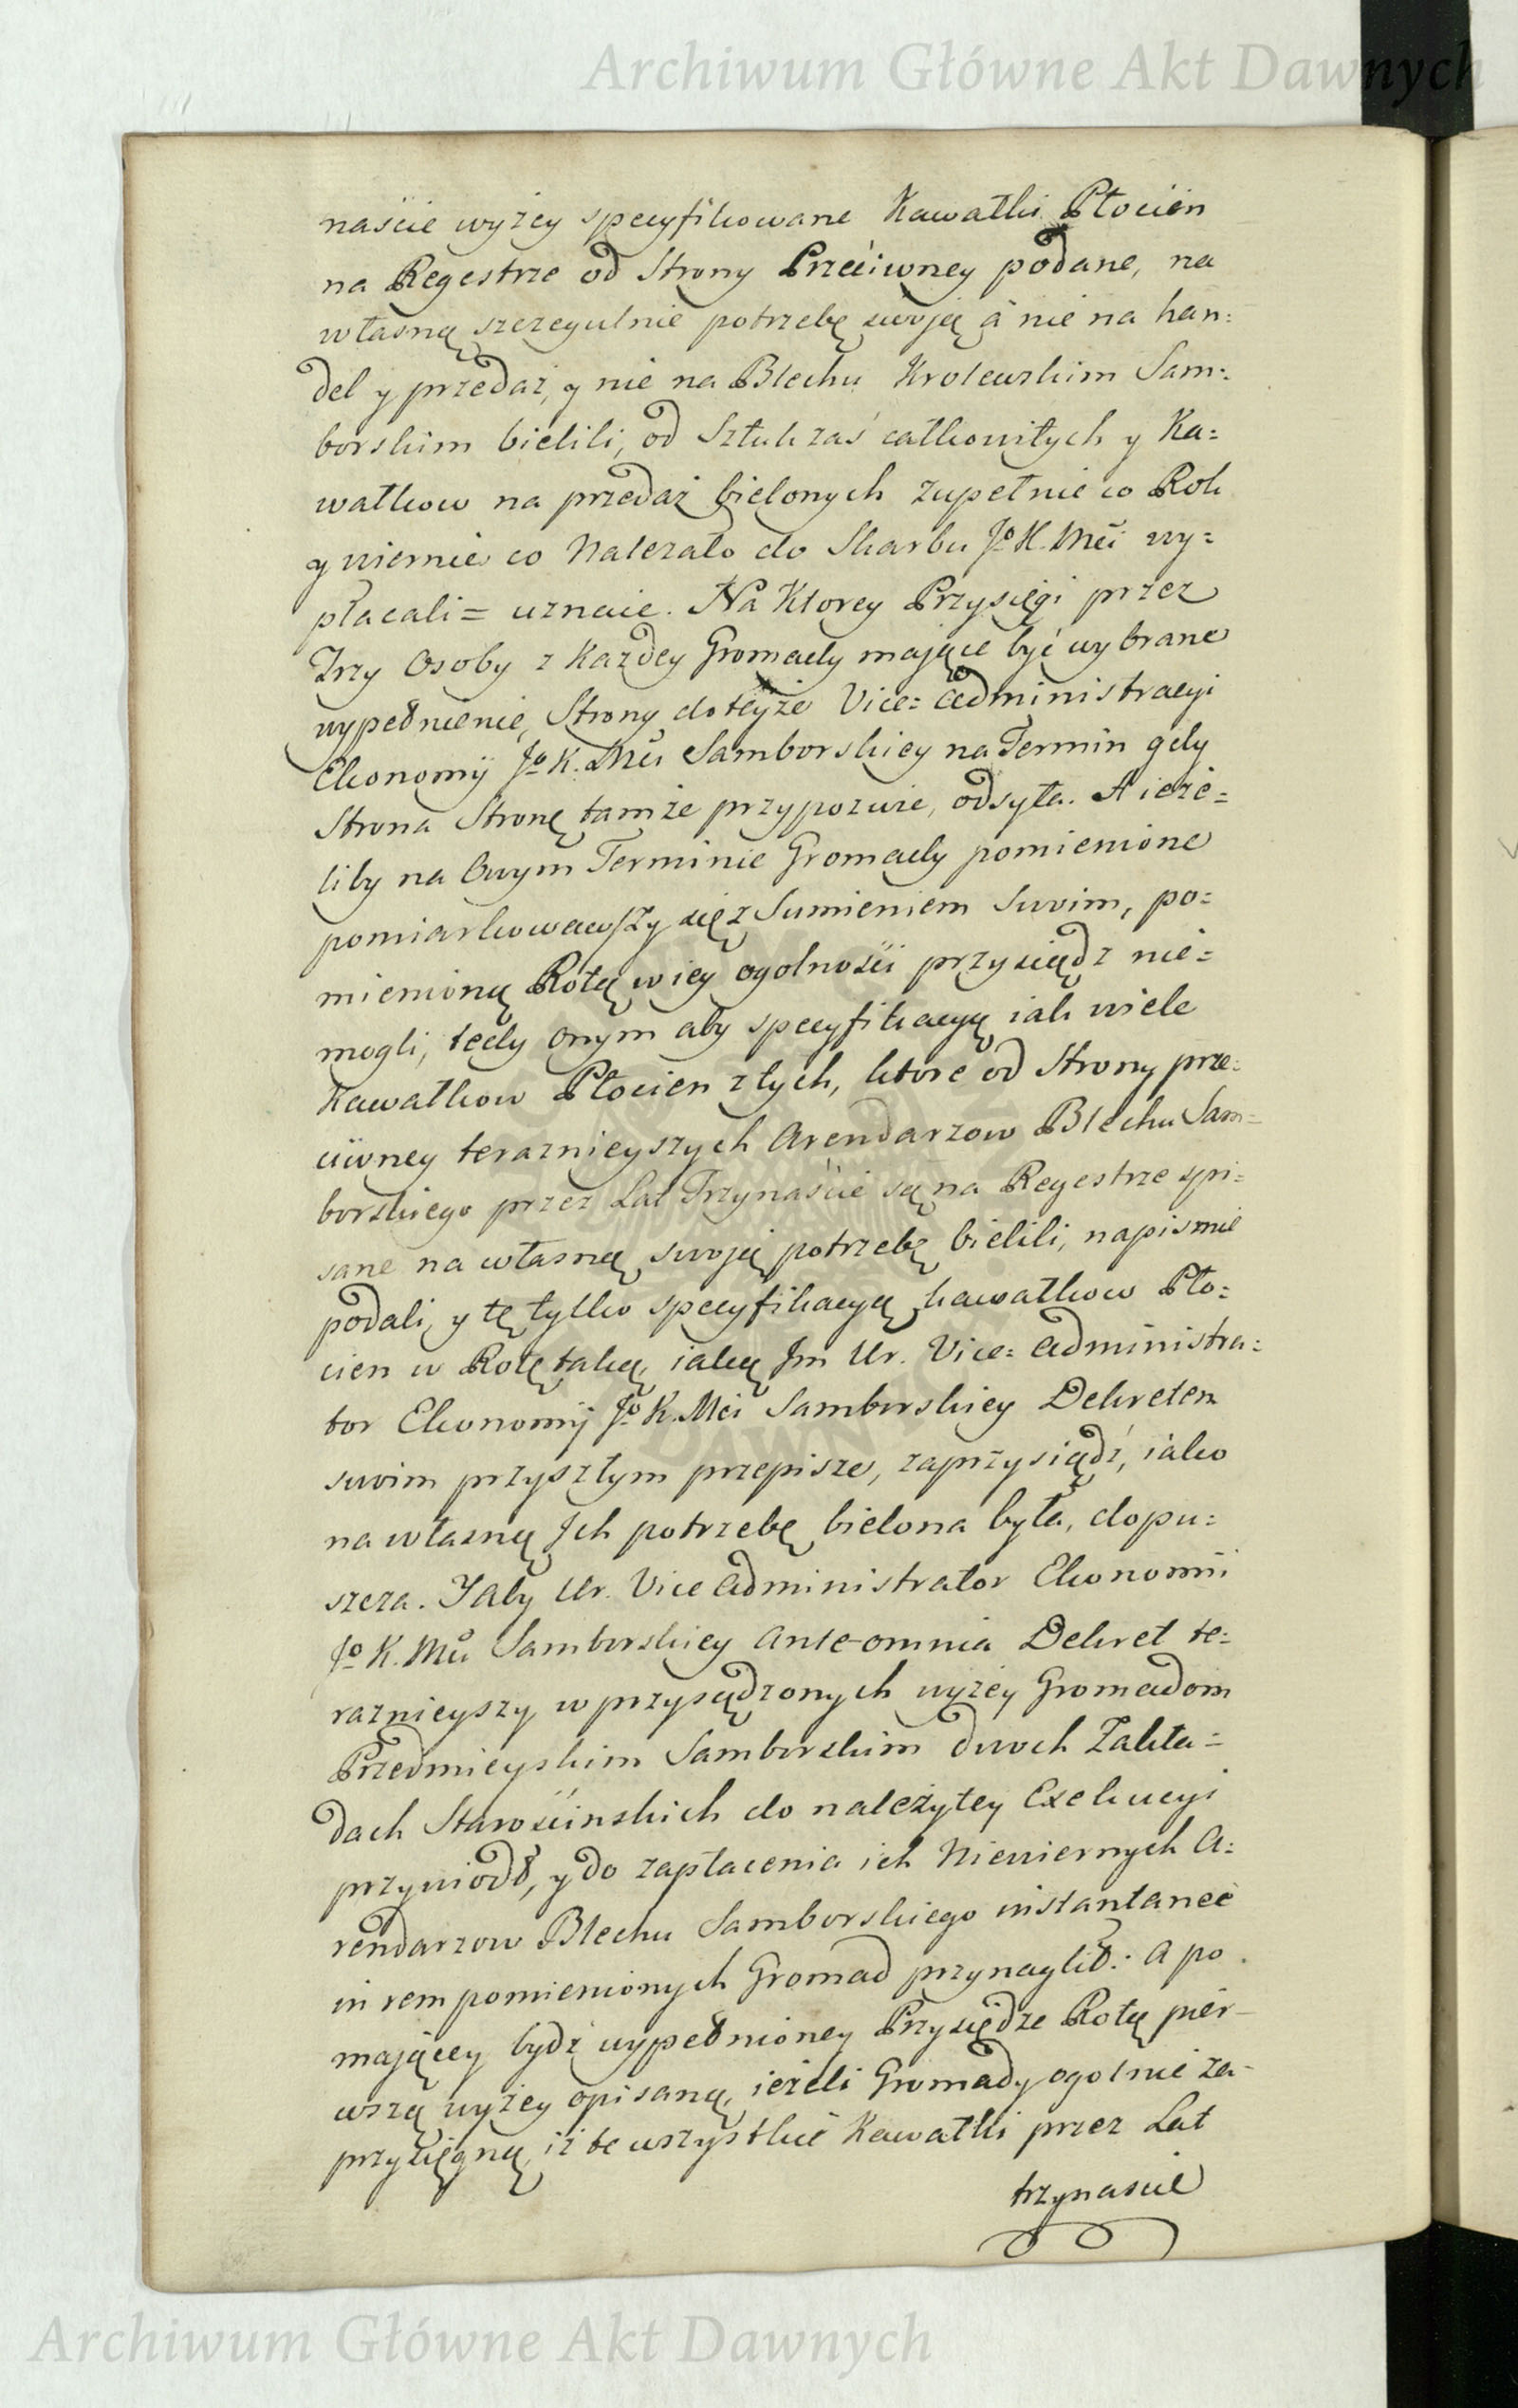 Archiwum Główne Akt Dawnych
naście wyżey specyfikowane Kawałki Płocien
na Regestrze od Strony Przeciwney podane, na
własną szczegulnie potrzebę swoją á nie na han=
del y przedaż, y nie na Blechu Krolewskim Sam=
borskim bielili, od Sztuk zaś całkowitych y Ka=
wałkow na przedaż bielonych zupełnie co Rok
y wiernie co Należało do Skarbu Jo K. Mci wy=
płacali = uznaie. Na Ktorey Przysięgi przez
Trzy Osoby z Każdey Gromady mające być wybrane
wypełnienie, Strony do teyże Vice=Administracyi
Ekonomij Jo K. Mci Samborskiey na Termin gdy
Strona Stronę tamże przypozwie, odsyła. A ieże=
liby na Owym Terminie Gromady pomienione
pomiarkowawszy się z Sumieniem Swoim, po=
mienioną Rotę w iey ogolności przysiądz nie=
mogli, tedy Onym aby specyfikacyą iak wiele
Kawałkow Płocien z tych, ktore od Strony prze=
ciwney teraznieyszych Arendarzow Blechu Sam=
borskiego przez Lat Trzynaście są na Regestrze spi=
sane na własną swoję potrzebę bielili, napismie
podali, y tę tylko specyfikacyą kawałkow Pło=
cien w Rotę taką, iaką Jm Ur. Vice=Administra=
tor Ekonomij Jo K. Mci Samborskiey Dekretem
swoim przyszłym przepisze, zaprzysiądź, iako
na własną Ich potrzebę bielona była, dopu=
szcza. Y aby Ur. Vice Administrator Ekonomii
Jo K. Mci Samborskiey Ante omnia Dekret te=
raznieyszy w przysądzonych wyżey Gromadom
Przedmieyskim Samborskim dwoch Zakła=
dach Starościnskich do należytey Exekucyi
przywiodł, y do zapłacenia ich Niewiernych A=
rendarzow Blechu Samborskiego instantanee
in rem pomienionych Gromad przynaglił: A po
mającey bydź wypełnioney Przysiędze Rotą pier=
wszą wyżey opisaną, ieżeli Gromady ogolnie za=
przysięgną, iż te wszystkie Kawałki przez Lat
trzynascie
Archiwum Główne Akt Dawnych